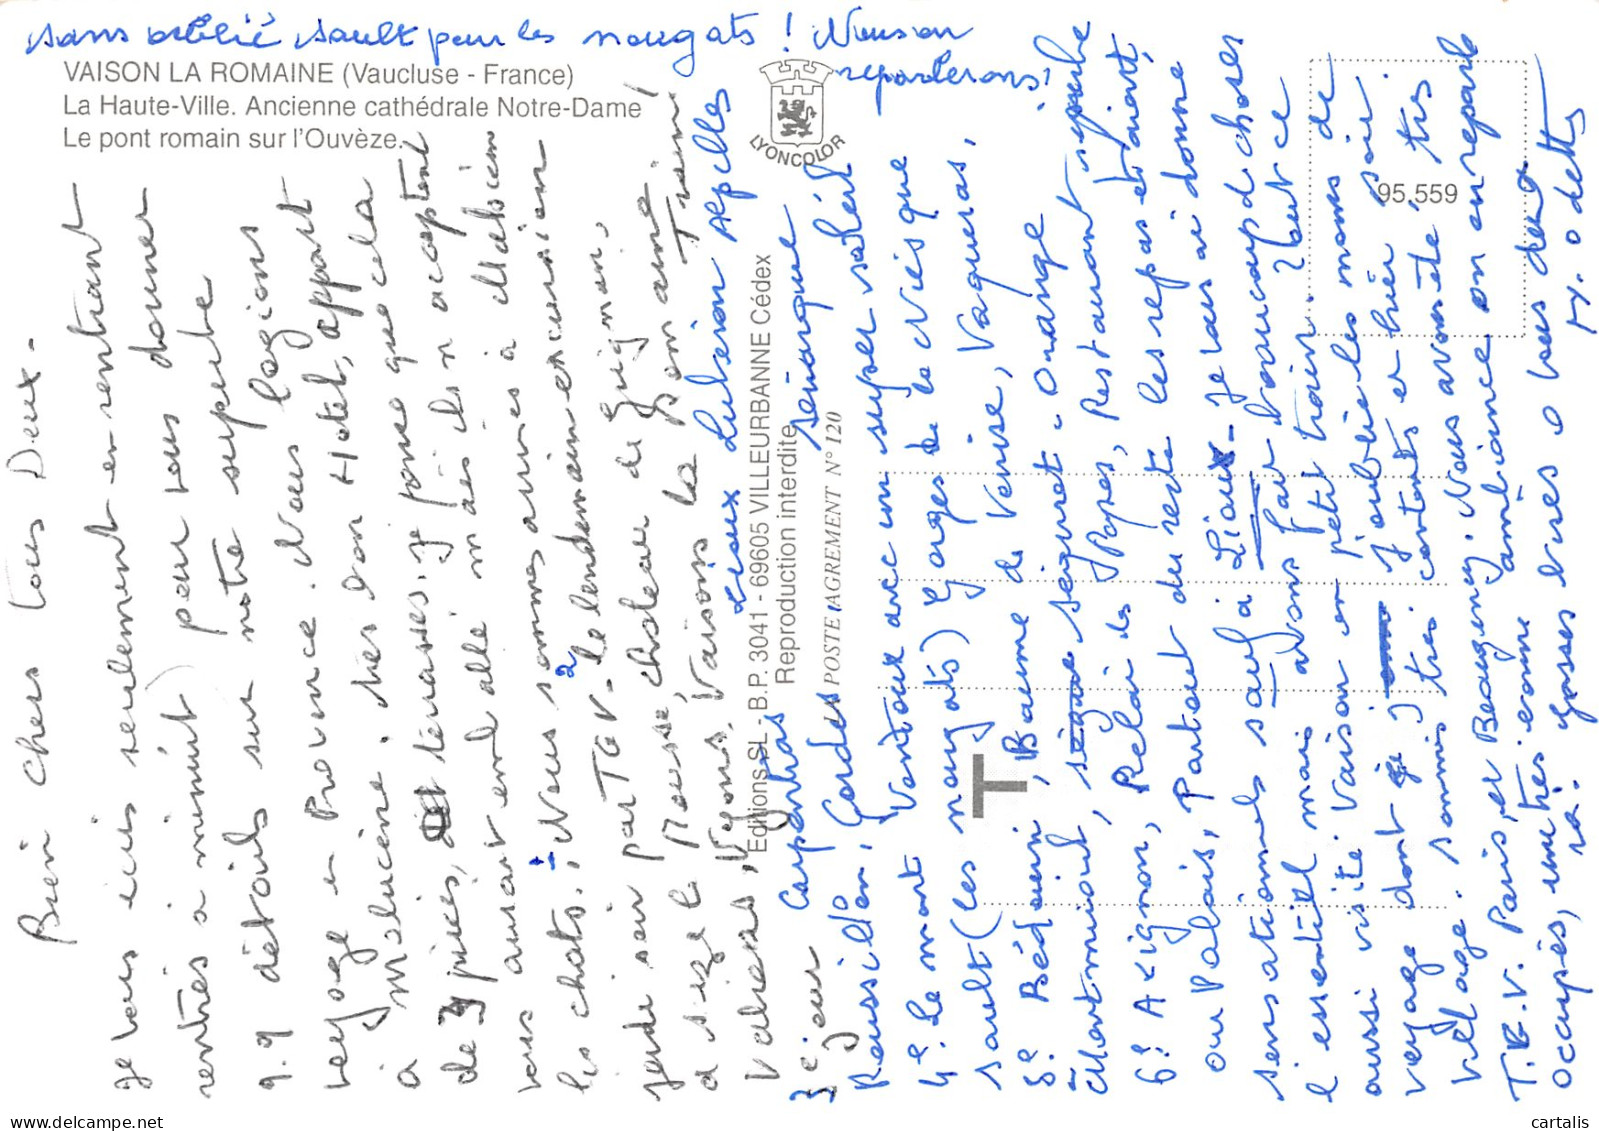 sans oublié sault pour les nougats ! Nous en
reparlerons !
VAISON LA ROMAINE (Vaucluse - France)
La Haute-Ville. Ancienne cathédrale Notre-Dame
Le pont romain sur l'Ouvèze.
LYONCOLOR
95.559
Editions SL - B.P. 3041 - 69605 VILLEURBANNE Cédex
Reproduction interdite
POSTE AGREMENT N° 120
T
Bien chers tous Deux -
je vous écris seulement en rentrant
rentrés à minuit) pour vous donner
q.q détails sur notre superbe
voyage en Provence. Nous logions
à Malucène. très bon Hotel, appart
de 3 pièces, terrasse. je pense que cela
vous aurait emballé mais ils n acceptent
les chats. 1 Nous sommes arrivés à Malucène
jeudi soir par TGV - 2 le lendemain excursion
a size la Rousse, chateau de Guignan,
Valréas, Nyons, Vaisons la Romaine. Train!
3e jour Carpentras Lioux Luberon Alpilles
Roussillon, Gordes Sénanque
4e. Le mont Ventoux avec un super soleil
sault (les nougats) Gorges de la Nesque
5e Bédouin, Baume de Venise, Vaqueras,
Montmirail, séguret - Orange
6e Avignon, Relai des Papes, Restaurant superbe
ou Palais, Partout du reste les repas étaient
sensationnels sauf à Lioux - je vous ai donné
l essentiel mais avons fait beaucoup de choses
aussi visité Vaison en petit train. Tout ce
voyage dont j oublie les noms de
village. Sommes très contents et hier soir
T.B.V. Paris, et Beaugency. Nous avons été, très
occupés, une très bonne ambiance on en reparle
ra. Grosses bises a vous deux
M. Odette
cartalis